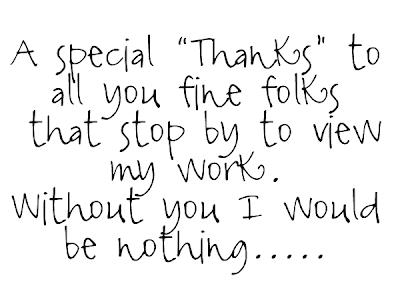 A special "Thanks" to
all you fine folks
that stop by to view
my work.
Without you I would
be nothing.....